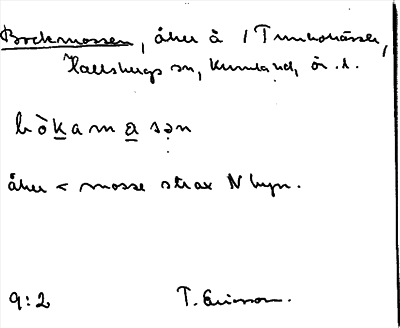 Bockmossen, åker å 1 Tunbohässle,
Hallsbergs sn, Kumla hd, ör. l.
bòkamasən
åker < mosse strax N byn.
9:2 T. Ericsson.